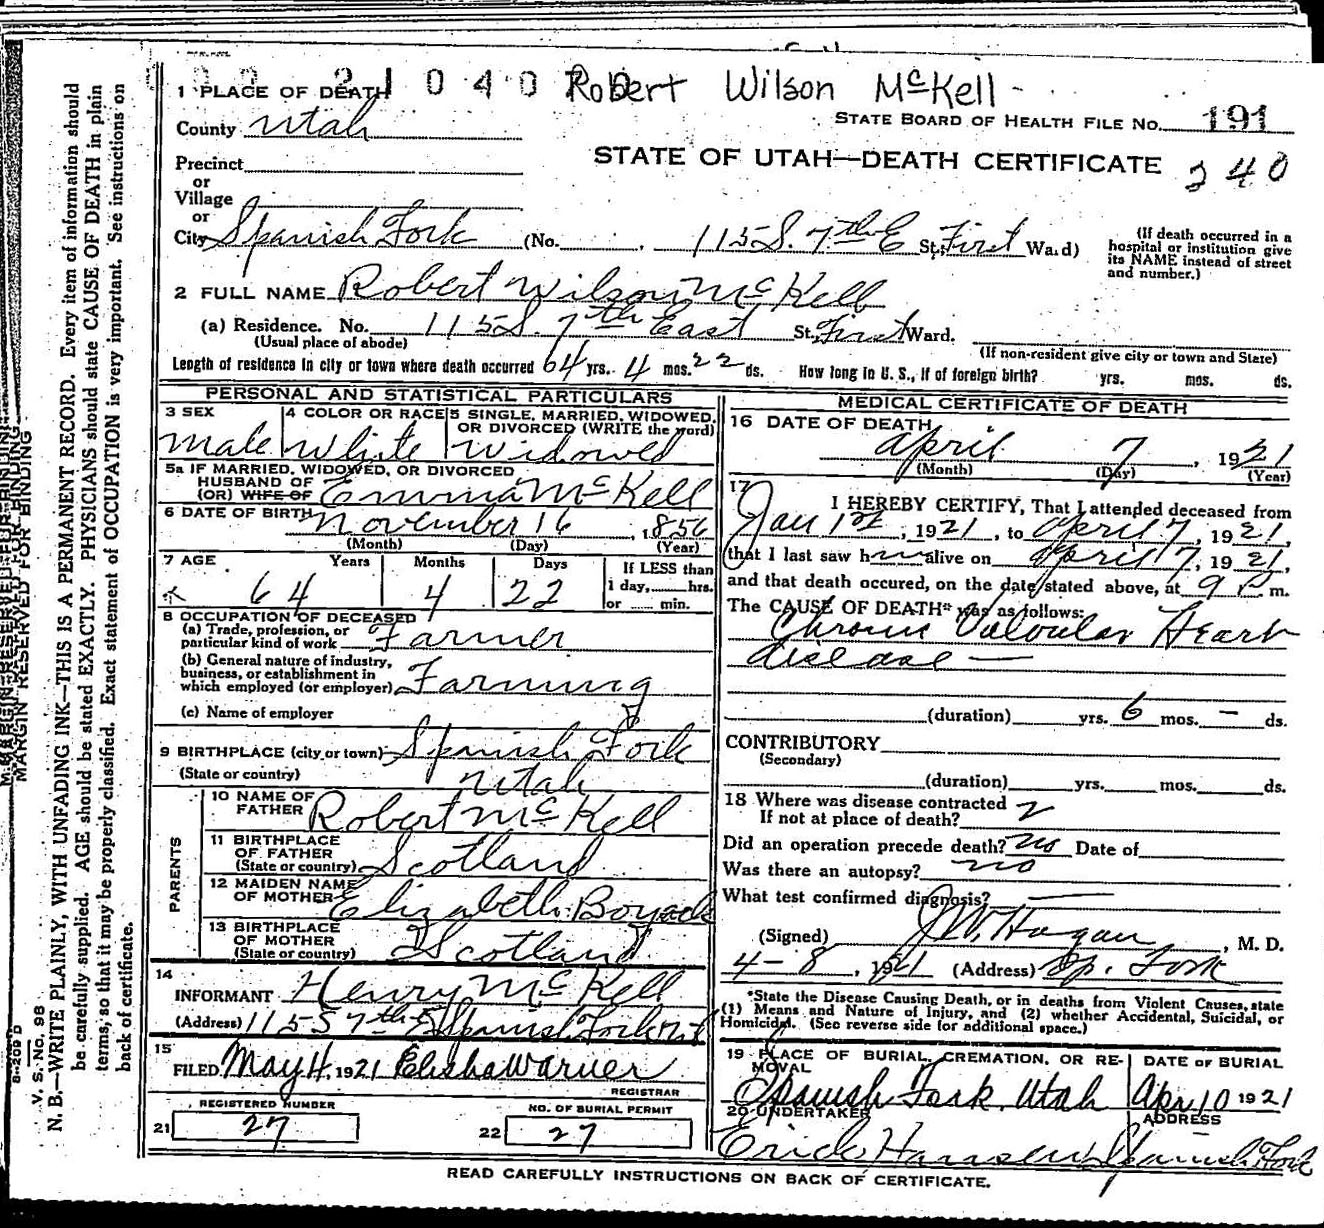 21040 Robert Wilson McKell
1 PLACE OF DEATH
County Utah
STATE BOARD OF HEALTH FILE No. 191
Precinct
STATE OF UTAH—DEATH CERTIFICATE 240
or
Village
or
City Spanish Fork (No. 115 S. 7th E St; First Ward)
(If death occurred in a hospital or institution give its NAME instead of street and number.)
2 FULL NAME Robert Wilson McKell
(a) Residence. No. 115 S. 7th East St; First Ward.
(Usual place of abode)
(If non-resident give city or town and State)
Length of residence in city or town where death occurred 64 yrs. 4 mos. 22 ds. How long in U. S., if of foreign birth? yrs. mos. ds.
PERSONAL AND STATISTICAL PARTICULARS
3 SEX
male
4 COLOR OR RACE
White
5 SINGLE, MARRIED, WIDOWED, OR DIVORCED (WRITE the word)
Widowed
5a IF MARRIED, WIDOWED, OR DIVORCED
HUSBAND OF
(OR) WIFE OF Emma McKell
6 DATE OF BIRTH November 16, 1856
(Month) (Day) (Year)
7 AGE Years Months Days If LESS than
64 4 22 1 day, hrs.
or min.
8 OCCUPATION OF DECEASED
(a) Trade, profession, or
particular kind of work Farmer
(b) General nature of industry,
business, or establishment in
which employed (or employer) Farming
(c) Name of employer
9 BIRTHPLACE (city or town) Spanish Fork
(State or country) Utah
PARENTS
10 NAME OF
FATHER Robert McKell
11 BIRTHPLACE
OF FATHER
(State or country) Scotland
12 MAIDEN NAME
OF MOTHER Elizabeth Boyack
13 BIRTHPLACE
OF MOTHER
(State or country) Scotland
14
INFORMANT Henry McKell
(Address) 115 S 7th E Spanish Fork Ut
15
FILED May 4, 1921 Elisha Warner
REGISTRAR
REGISTERED NUMBER
21 27
NO. OF BURIAL PERMIT
22 27
MEDICAL CERTIFICATE OF DEATH
16 DATE OF DEATH
April 7, 1921
(Month) (Day) (Year)
17
I HEREBY CERTIFY, That I attended deceased from
Jan 1st, 1921, to April 7, 1921,
that I last saw him alive on April 7, 1921,
and that death occured, on the date stated above, at 9 P. m.
The CAUSE OF DEATH* was as follows:
Chronic Valvular Heart
disease —
(duration) yrs. 6 mos. – ds.
CONTRIBUTORY
(Secondary)
(duration) yrs. mos. ds.
18 Where was disease contracted
If not at place of death?
Did an operation precede death? no Date of
Was there an autopsy? no
What test confirmed diagnosis? —
(Signed) J. W. Hagan, M. D.
4-8, 1921 (Address) Sp. Fork
*State the Disease Causing Death, or in deaths from Violent Causes, state
(1) Means and Nature of Injury, and (2) whether Accidental, Suicidal, or
Homicidal. (See reverse side for additional space.)
19 PLACE OF BURIAL, CREMATION, OR RE-
MOVAL
Spanish Fork, Utah
DATE OF BURIAL
Apr 10 1921
20 UNDERTAKER
Erick Hansen
ADDRESS
Spanish Fork
READ CAREFULLY INSTRUCTIONS ON BACK OF CERTIFICATE.
MARGIN RESERVED FOR BINDING
V. S. No. 98
N. B.—WRITE PLAINLY, WITH UNFADING INK—THIS IS A PERMANENT RECORD. Every item of information should
be carefully supplied. AGE should be stated EXACTLY. PHYSICIANS should state CAUSE OF DEATH in plain
terms, so that it may be properly classified. Exact statement of OCCUPATION is very important. See instructions on
back of certificate.